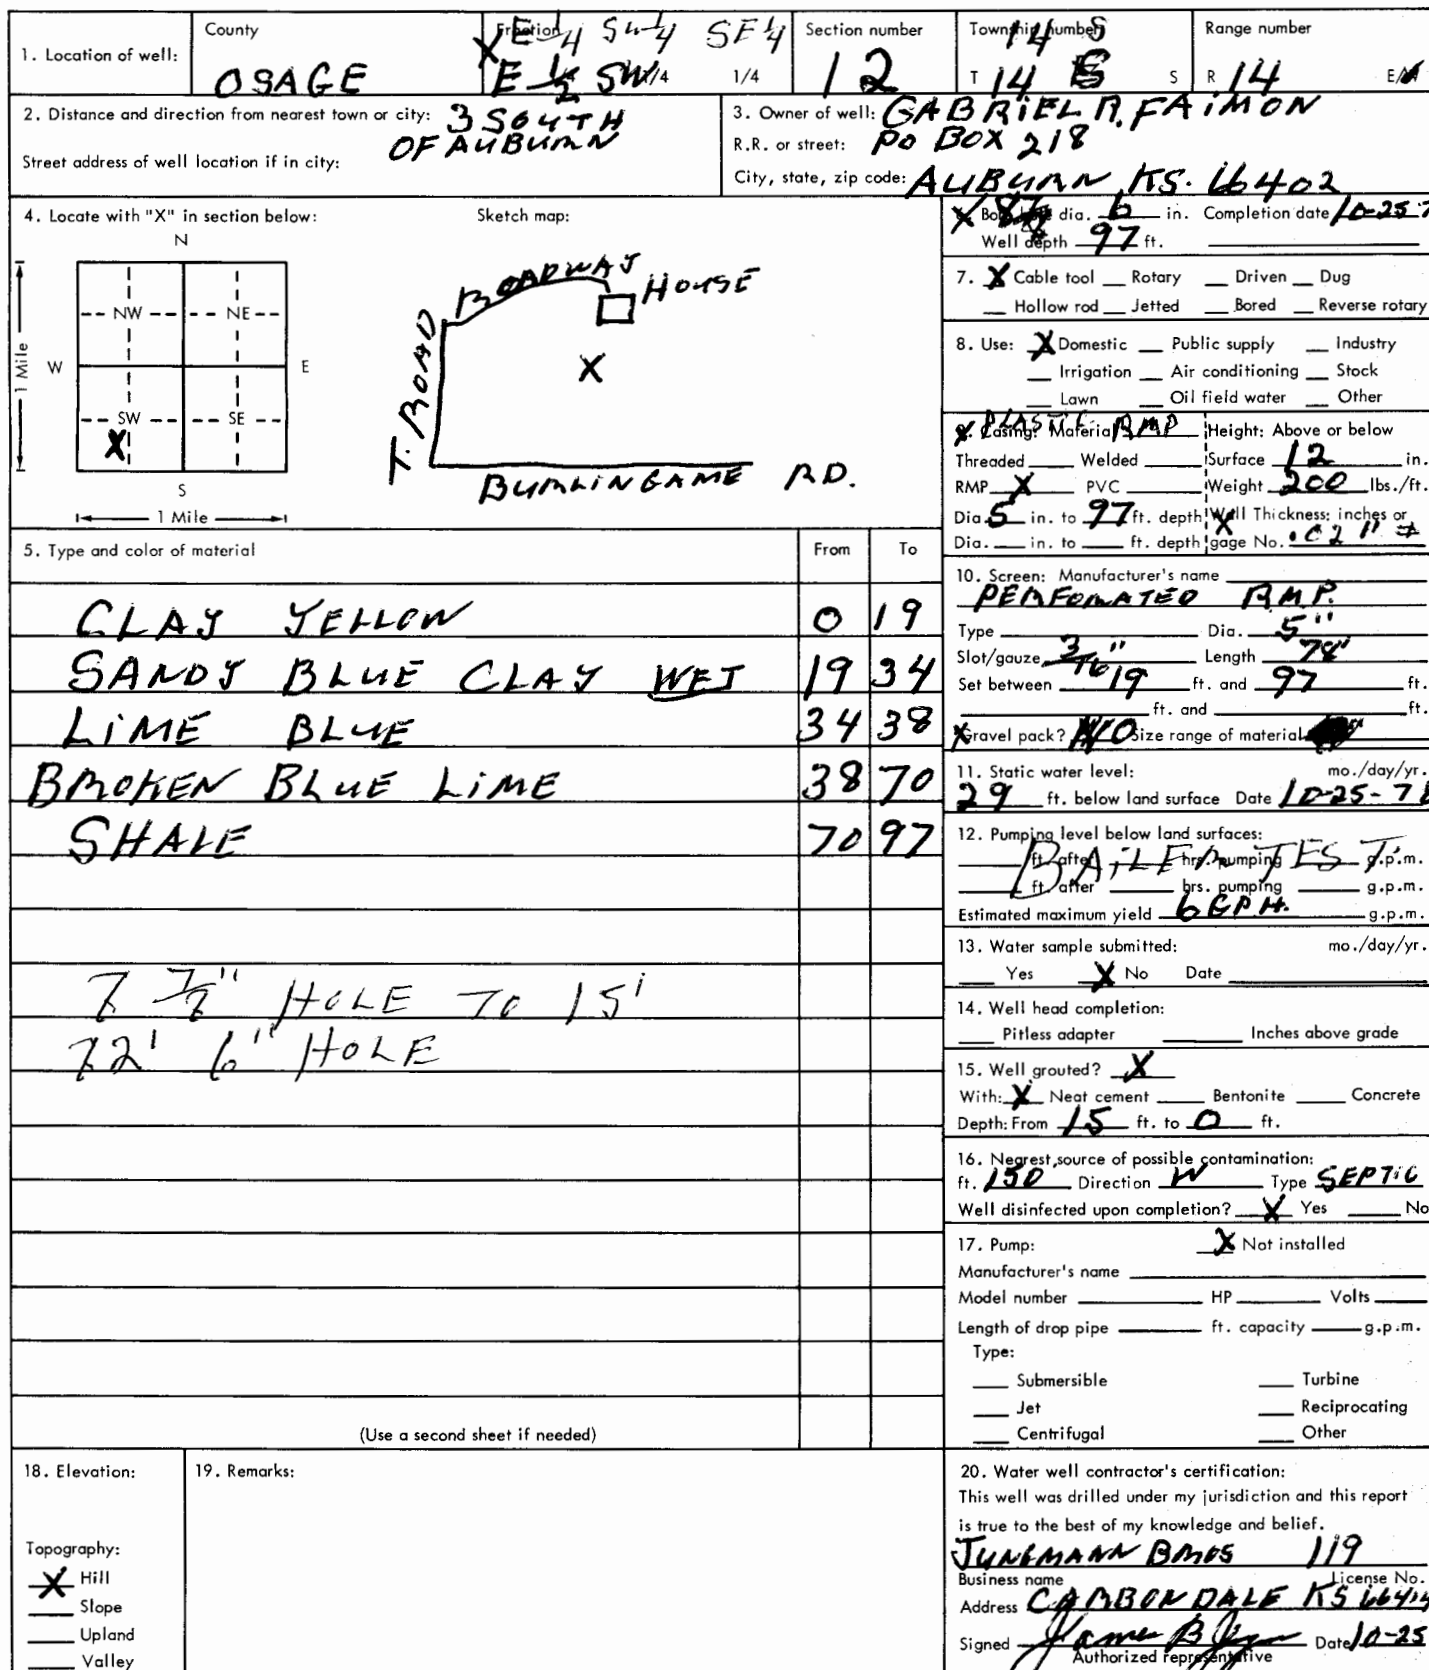 1. Location of well:
County
OSAGE
Fraction
E 1/4 SW 1/4 SE 1/4
X E 1/2 SW 1/4 1/4
Section number
12
Township number
14 S
T 14 S S
Range number
R 14 E/W
2. Distance and direction from nearest town or city: 3 SOUTH
OF AUBURN
Street address of well location if in city:
3. Owner of well: GABRIEL R. FAIMON
R.R. or street: PO BOX 218
City, state, zip code: AUBURN, KS. 66402
4. Locate with "X" in section below:
N
NW NE
W E
SW SE
X
S
1 Mile
1 Mile
Sketch map:
BROADWAY
HOUSE
T. ROAD
X
BURLINGAME RD.
5. Type and color of material From To
CLAY YELLOW 0 19
SANDY BLUE CLAY WET 19 34
LIME BLUE 34 38
BROKEN BLUE LIME 38 70
SHALE 70 97
7 7/8" HOLE TO 15'
72' 6" HOLE
(Use a second sheet if needed)
dia. 6 in. Completion date 10-25-7
Well depth 97 ft.
7. X Cable tool Rotary Driven Dug
Hollow rod Jetted Bored Reverse rotary
8. Use: X Domestic Public supply Industry
Irrigation Air conditioning Stock
Lawn Oil field water Other
PLASTIC
9. Casing: Material RMP Height: Above or below
Threaded Welded Surface 12 in.
RMP X PVC Weight 200 lbs./ft.
Dia. 5 in. to 97 ft. depth Wall Thickness: inches or
Dia. in. to ft. depth gage No.
10. Screen: Manufacturer's name
PERFORATED RMP.
Type Dia. 5"
Slot/gauze 3/16" Length 78'
Set between 19 ft. and 97 ft.
ft. and ft.
X Gravel pack? NO Size range of material
11. Static water level: mo./day/yr.
29 ft. below land surface Date 10-25-7
12. Pumping level below land surfaces:
BAILER TEST
ft. after hrs. pumping g.p.m.
ft. after hrs. pumping g.p.m.
Estimated maximum yield 6 GPH. g.p.m.
13. Water sample submitted: mo./day/yr.
Yes X No Date
14. Well head completion:
Pitless adapter Inches above grade
15. Well grouted? X
With: X Neat cement Bentonite Concrete
Depth: From 15 ft. to 0 ft.
16. Nearest source of possible contamination:
ft. 150 Direction W Type SEPTIC
Well disinfected upon completion? X Yes No
17. Pump: X Not installed
Manufacturer's name
Model number HP Volts
Length of drop pipe ft. capacity g.p.m.
Type:
Submersible Turbine
Jet Reciprocating
Centrifugal Other
18. Elevation:
Topography:
X Hill
Slope
Upland
Valley
19. Remarks:
20. Water well contractor's certification:
This well was drilled under my jurisdiction and this report
is true to the best of my knowledge and belief.
JUNGMANN BROS 119
Business name License No.
Address CARBONDALE KS 66414
Signed Date 10-25
Authorized representative